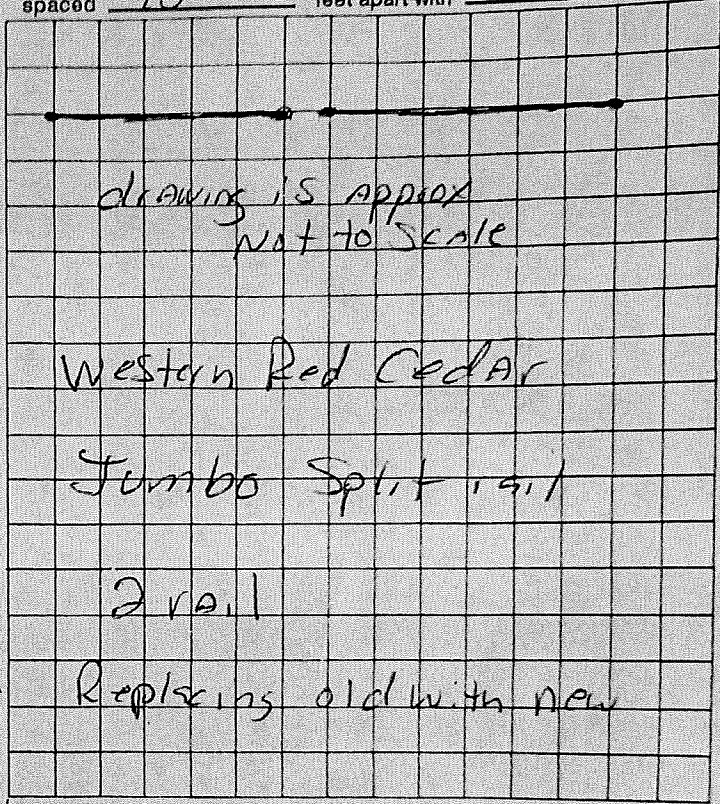 spaced feet apart with
drawing is approx
Not to Scale
Western Red Cedar
Jumbo Split rail
2 rail
Replacing old with new